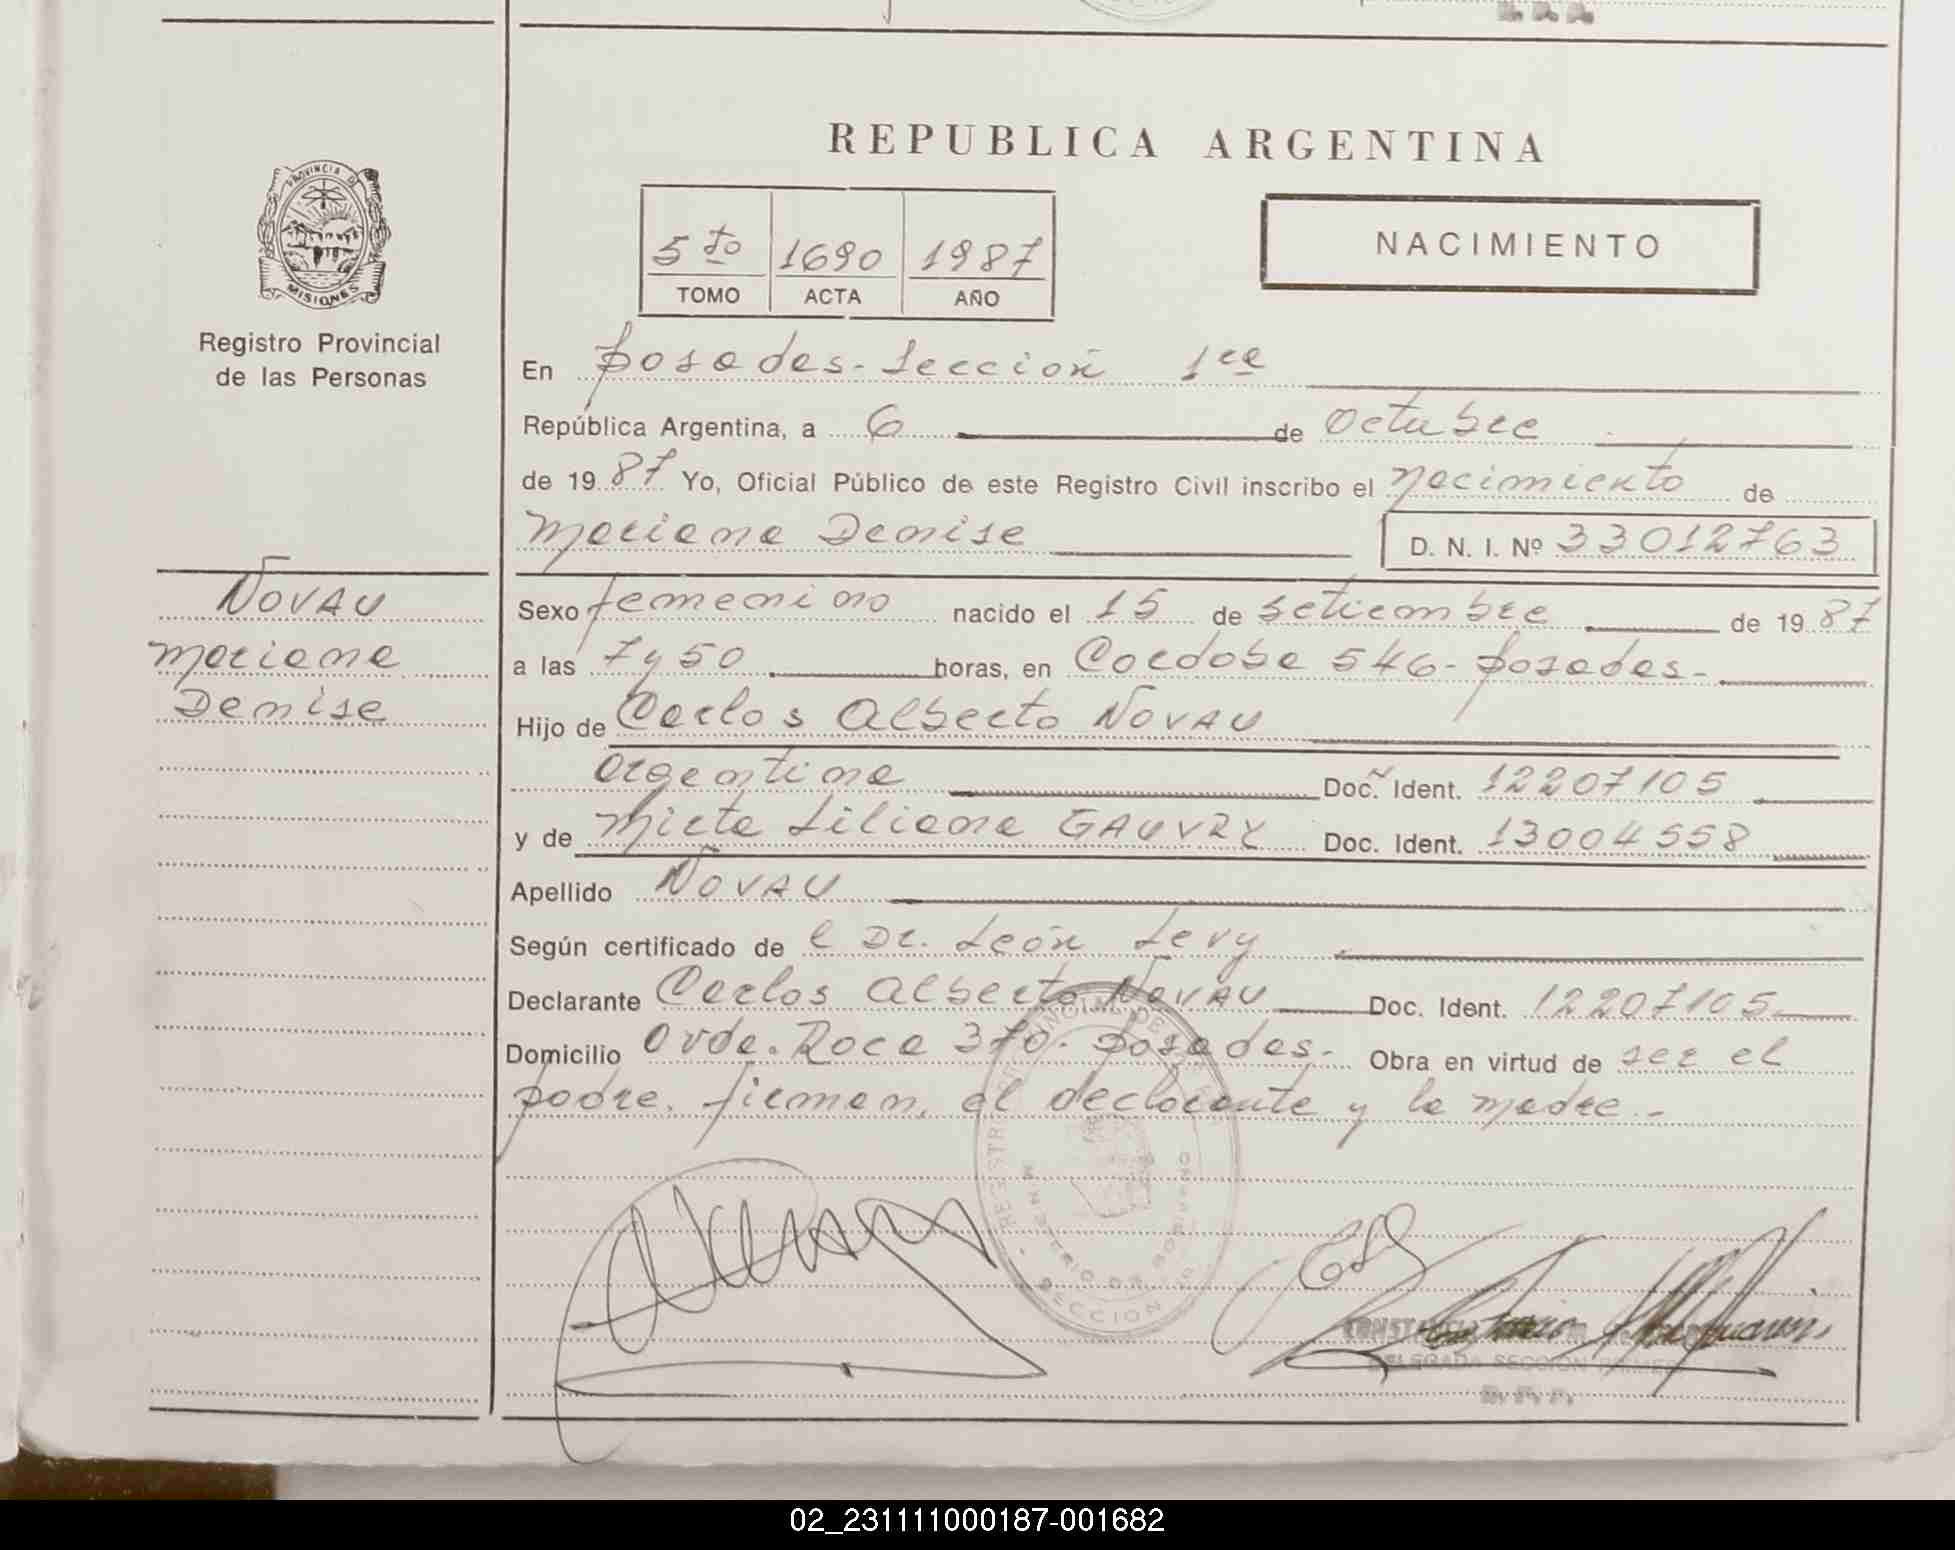 REPUBLICA ARGENTINA
PROVINCIA DE
MISIONES
Registro Provincial
de las Personas
5to 1690 1987
TOMO ACTA AÑO
NACIMIENTO
En Posadas - Sección 1ra
República Argentina, a 6 de octubre
de 1987 Yo, Oficial Público de este Registro Civil inscribo el nacimiento de
Mariana Denise D. N. I. Nº 33012763
NOVAU
Mariana
Denise
Sexo femenino nacido el 15 de setiembre de 1987
a las 7 y 50 horas, en Cordoba 546 - Posadas -
Hijo de Carlos Alberto NOVAU
argentina Doc. Ident. 12207105
y de Mirta Liliana GAUVRY Doc. Ident. 13004558
Apellido NOVAU
Según certificado de l Dr. León Levy
Declarante Carlos Alberto NOVAU Doc. Ident. 12207105
Domicilio Avda. Roca 370 - Posadas - Obra en virtud de ser el
padre. firman, el declarante y la madre. -
DELEGADA SECCION PRIMERA
R.P.P.
02_231111000187-001682